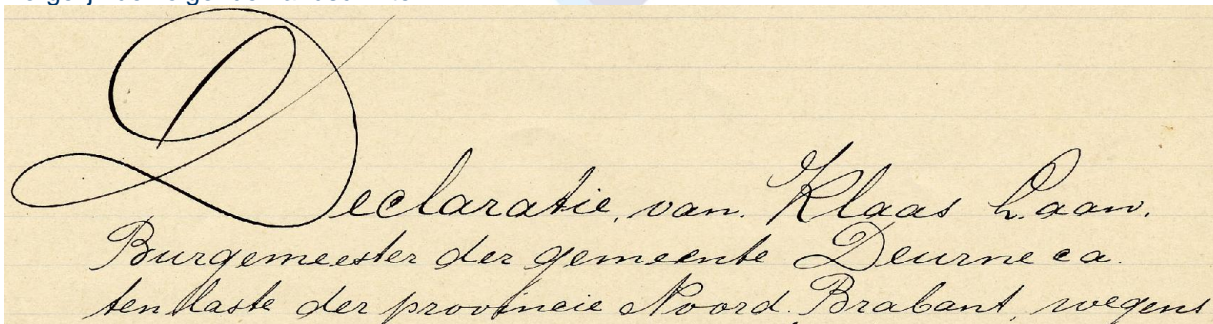 Declaratie, van. Klaas Laan.
Burgemeester der gemeente Deurne ca.
ten laste der provincie Noord. Brabant, wegens